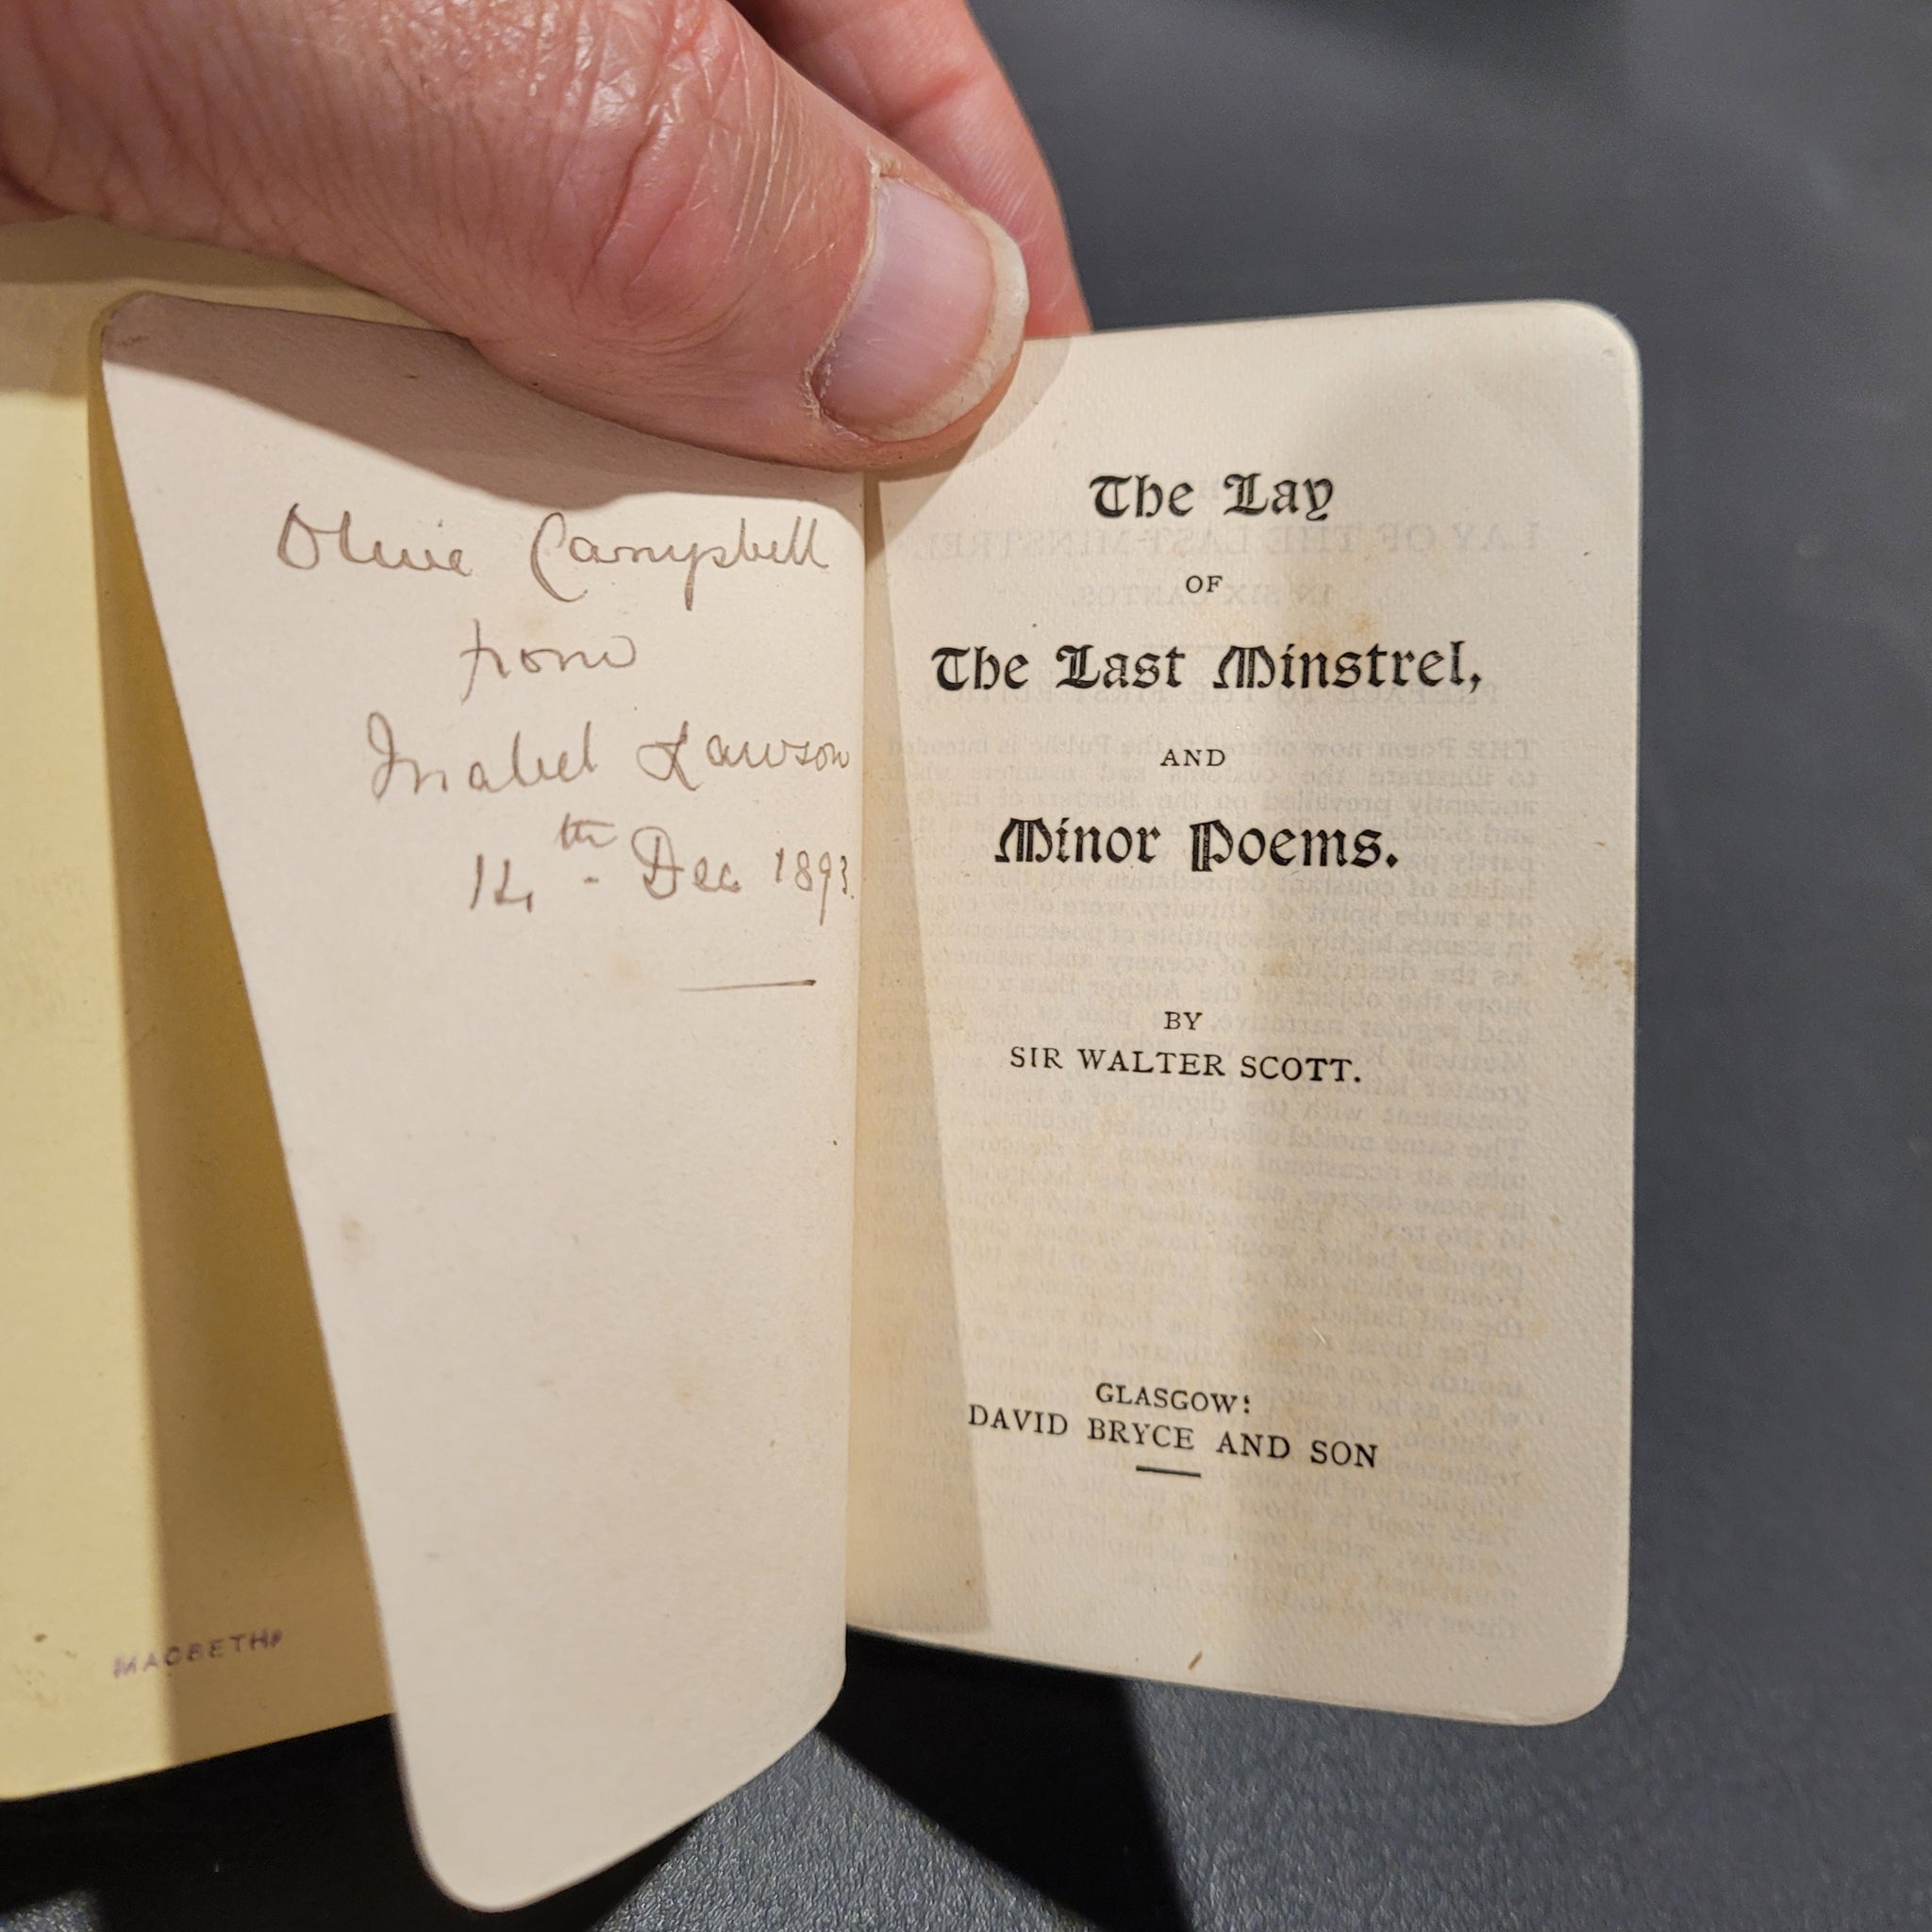 Olive Campbell
from
Mabel Lawson
14th Dec 1893.
MACBETH
The Lay
OF
The Last Minstrel,
AND
Minor Poems.
BY
SIR WALTER SCOTT.
GLASGOW:
DAVID BRYCE AND SON